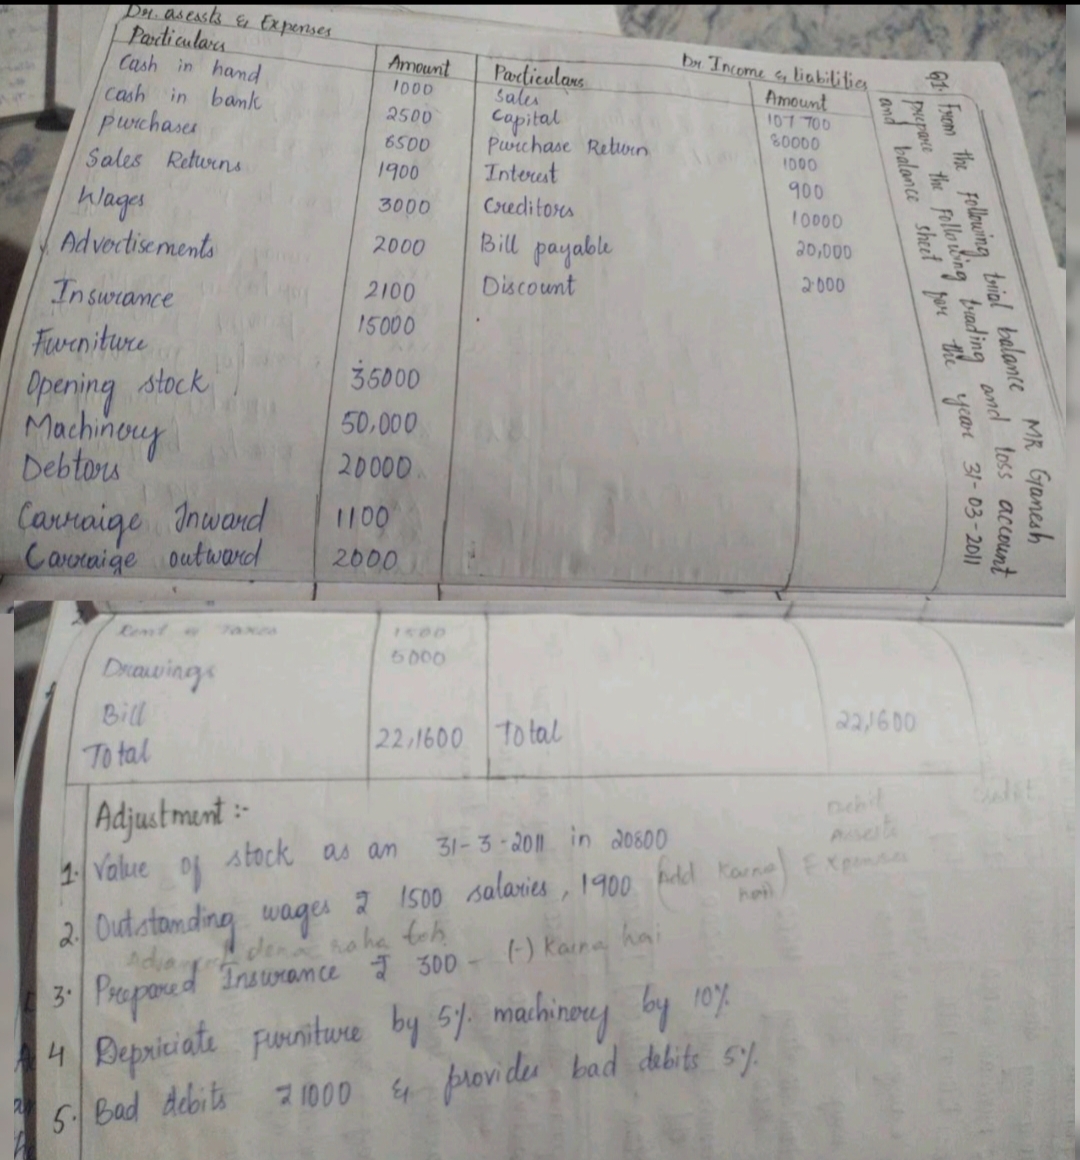 Q1. From the following trial balance MR Ganesh
prepare the following trading and loss account
and balance sheet for the year 31-03-2011
Dr. asessts & Expenses
Dr Income & liabilities
Particulars Amount Particulars Amount
Cash in hand 1000 Sales 107700
cash in bank 2500 Capital 80000
purchases 6500 Purchase Return 1000
Sales Returns 1900 Interest 900
Wages 3000 Creditors 10000
Advertisements 2000 Bill payable 20,000
Insurance 2100 Discount 2000
Furniture 15000
Opening stock 35000
Machinery 50,000
Debtors 20000
Carraige Inward 1100
Carraige outward 2000
Rent & Taxes 1500
Drawings 5000
Bill
Total 22,1600 Total 22,1600
Adjustment :-
1. Value of stock as an 31-3-2011 in 20800
2. Outstanding wages ₹ 1500 salaries, 1900 (Add Karna hai)
dena raha toh (-) Karna hai
3. Prepared Insurance ₹ 300 -
4 Depriciate Furniture by 5% machinery by 10%
5. Bad debits ₹1000 & provides bad debits 5%.
debit
assests
Expenses